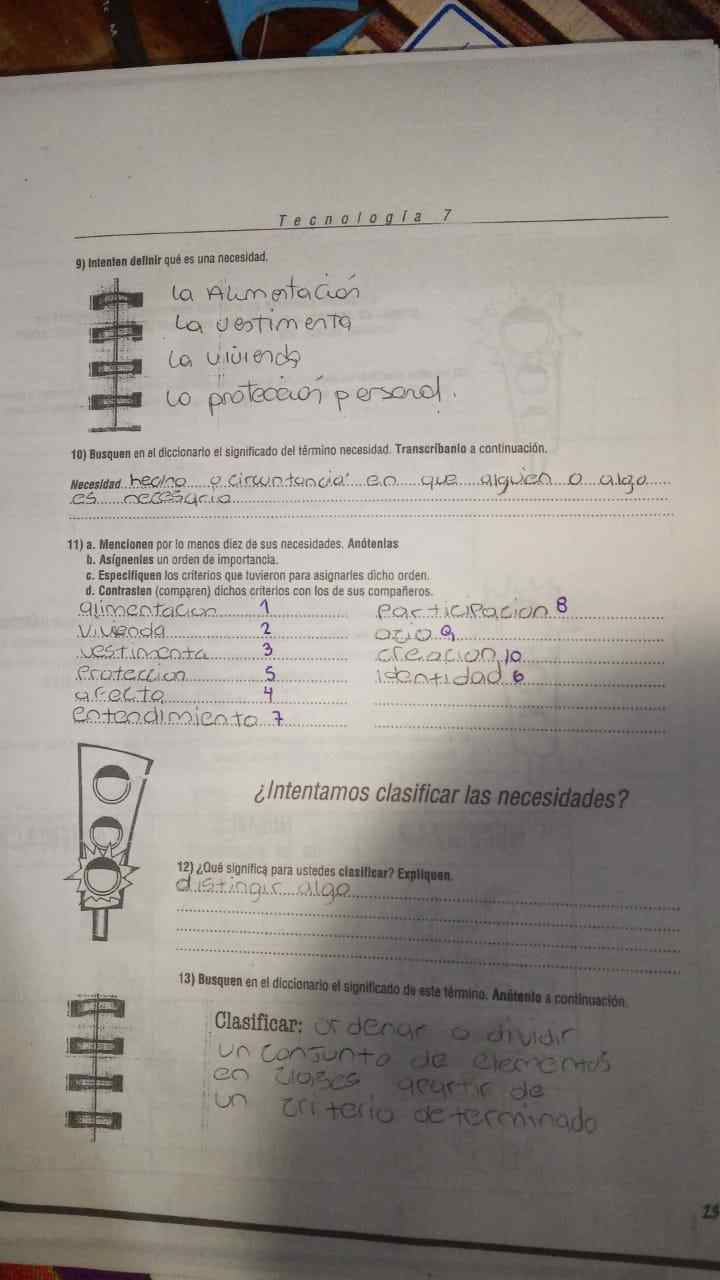 Tecnología 7
9) Intenten definir qué es una necesidad.
La Alimentación
La vestimenta
La vivienda
La protección personal.
10) Busquen en el diccionario el significado del término necesidad. Transcríbanlo a continuación.
Necesidad hecho o circuntancia en que alguien o algo
es necesario
11) a. Mencionen por lo menos diez de sus necesidades. Anótenlas
b. Asígnenles un orden de importancia.
c. Especifiquen los criterios que tuvieron para asignarles dicho orden.
d. Contrasten (comparen) dichos criterios con los de sus compañeros.
alimentacion 1
vivienda 2
vestimenta 3
Proteccion 5
afecto 4
entendimiento 7
Participacion 8
ocio 9
creacion 10
identidad 6
¿Intentamos clasificar las necesidades?
12) ¿Qué significa para ustedes clasificar? Expliquen.
distingir algo
13) Busquen en el diccionario el significado de este término. Anótenlo a continuación.
Clasificar: ordenar o dividir
un conjunto de elementos
en clases apartir de
un criterio determinado